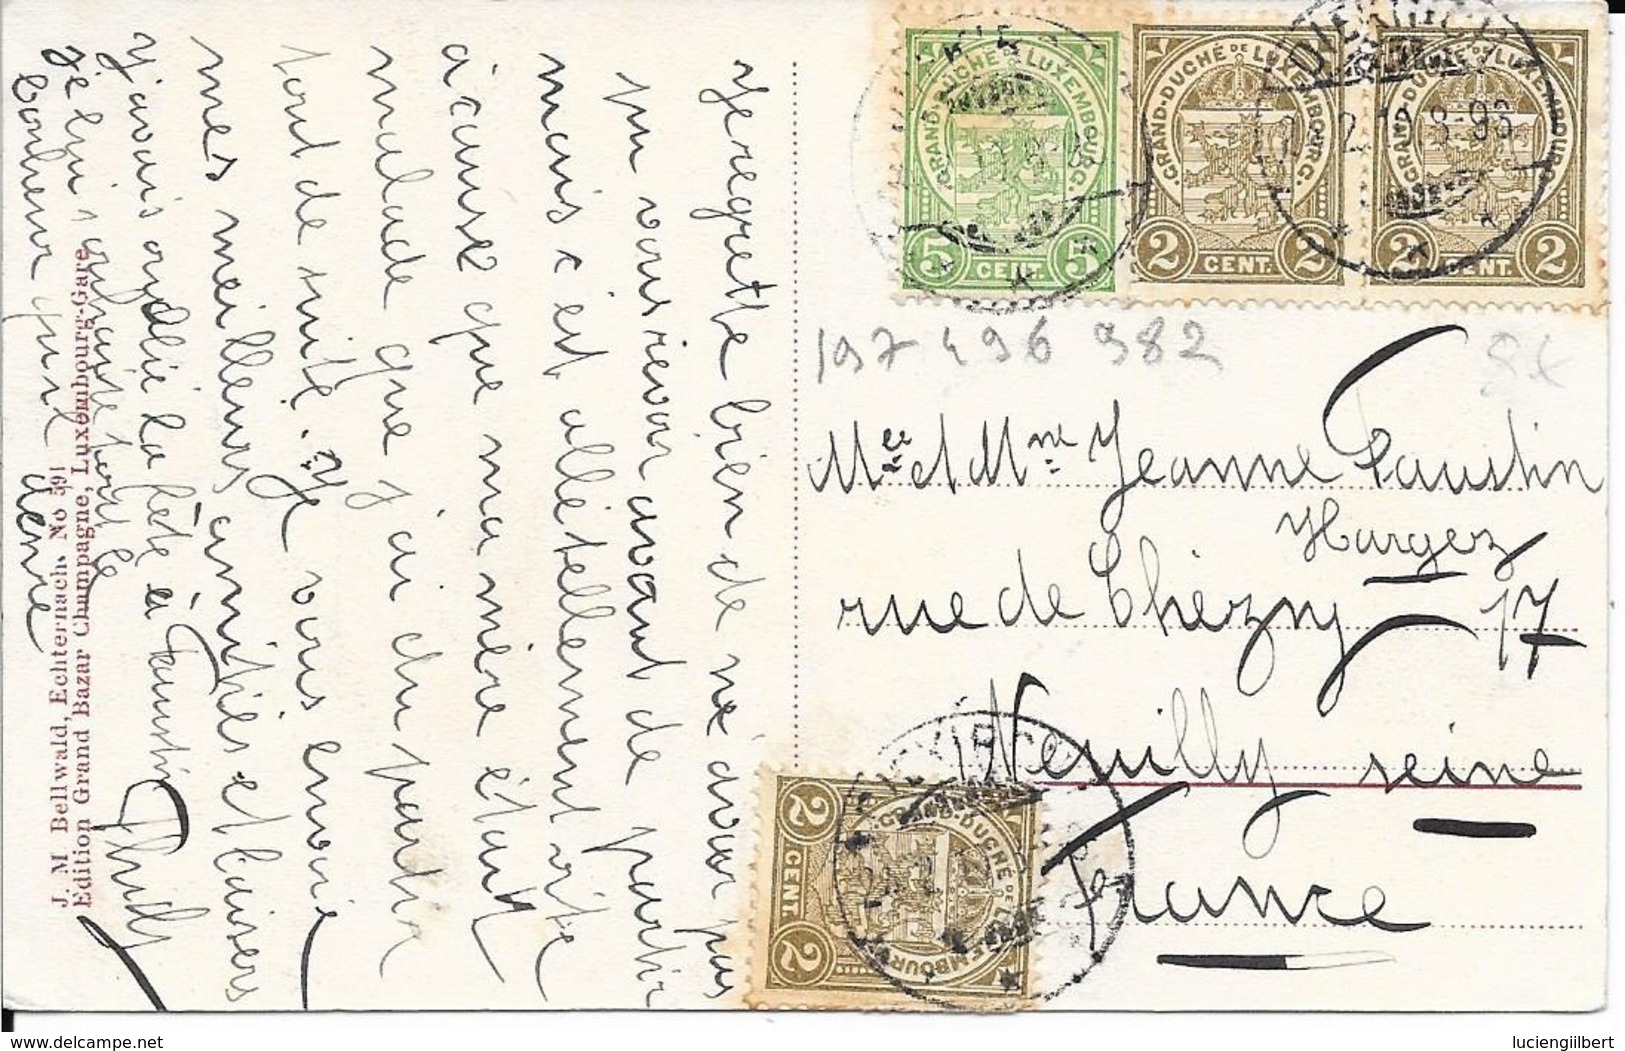 Je regrette bien de ne avoir pas
pu vous revoir avant de partir
mais c'est allé tellement vite
à cause que ma mère étant
malade que j'ai du partir
tout de suite. Je vous envoie
mes meilleurs amitiés et baisers
j'avais oublié la fête à Faustin
je lui souhaite tout le
bonheur qu'il donne
J. M. Bellwald, Echternach. No 591
Edition Grand Bazar Champagne, Luxembourg-Gare.
GRAND-DUCHÉ DE LUXEMBOURG.
5 CENT. 5
GRAND-DUCHÉ DE LUXEMBOURG.
2 CENT. 2
GRAND-DUCHÉ DE LUXEMBOURG.
2 CENT. 2
DIEKIRCH
197 496 982
Mr et Mme Jeanne Faustin
Hargez
rue de Chézy 17
Neuilly seine
France
GRAND-DUCHÉ DE LUXEMBOURG.
2 CENT. 2
DIEKIRCH
luciengilbert